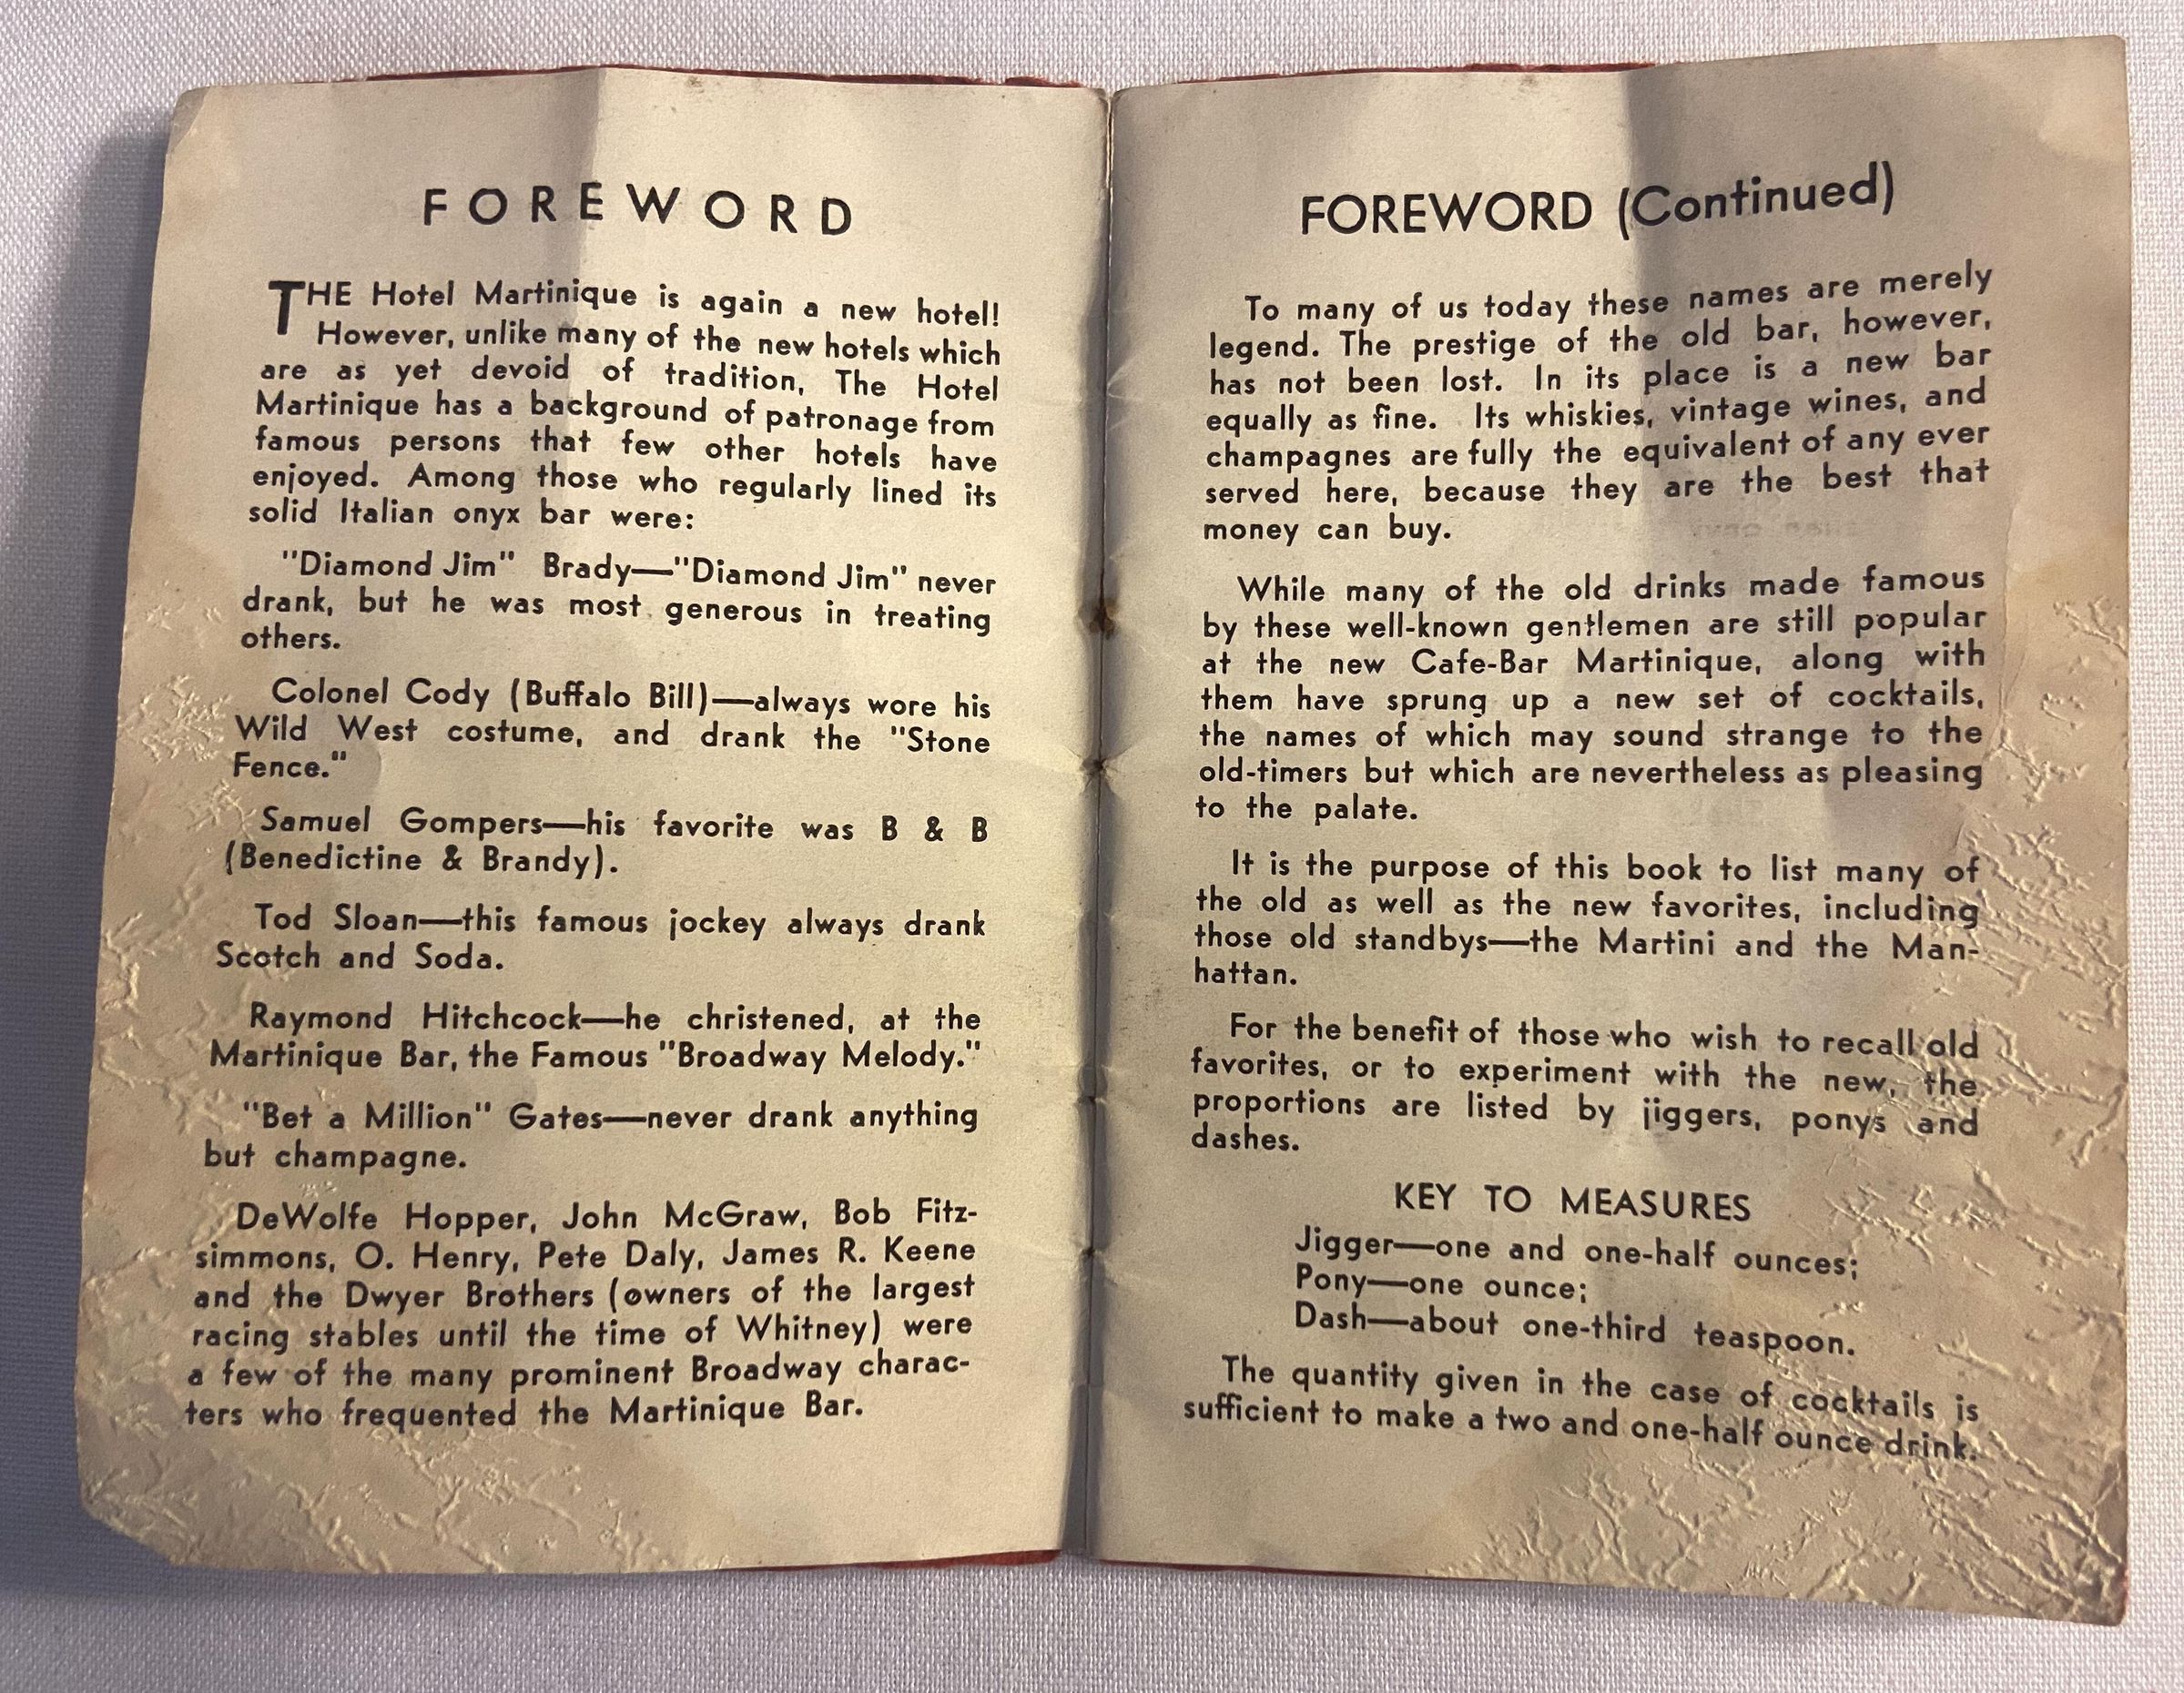 FOREWORD
THE Hotel Martinique is again a new hotel!
However, unlike many of the new hotels which
are as yet devoid of tradition, The Hotel
Martinique has a background of patronage from
famous persons that few other hotels have
enjoyed. Among those who regularly lined its
solid Italian onyx bar were:
"Diamond Jim" Brady—"Diamond Jim" never
drank, but he was most generous in treating
others.
Colonel Cody (Buffalo Bill)—always wore his
Wild West costume, and drank the "Stone
Fence."
Samuel Gompers—his favorite was B & B
(Benedictine & Brandy).
Tod Sloan—this famous jockey always drank
Scotch and Soda.
Raymond Hitchcock—he christened, at the
Martinique Bar, the Famous "Broadway Melody."
"Bet a Million" Gates—never drank anything
but champagne.
DeWolfe Hopper, John McGraw, Bob Fitz-
simmons, O. Henry, Pete Daly, James R. Keene
and the Dwyer Brothers (owners of the largest
racing stables until the time of Whitney) were
a few of the many prominent Broadway charac-
ters who frequented the Martinique Bar.
FOREWORD (Continued)
To many of us today these names are merely
legend. The prestige of the old bar, however,
has not been lost. In its place is a new bar
equally as fine. Its whiskies, vintage wines, and
champagnes are fully the equivalent of any ever
served here, because they are the best that
money can buy.
While many of the old drinks made famous
by these well-known gentlemen are still popular
at the new Cafe-Bar Martinique, along with
them have sprung up a new set of cocktails,
the names of which may sound strange to the
old-timers but which are nevertheless as pleasing
to the palate.
It is the purpose of this book to list many of
the old as well as the new favorites, including
those old standbys—the Martini and the Man-
hattan.
For the benefit of those who wish to recall old
favorites, or to experiment with the new, the
proportions are listed by jiggers, ponys and
dashes.
KEY TO MEASURES
Jigger—one and one-half ounces;
Pony—one ounce;
Dash—about one-third teaspoon.
The quantity given in the case of cocktails is
sufficient to make a two and one-half ounce drink.